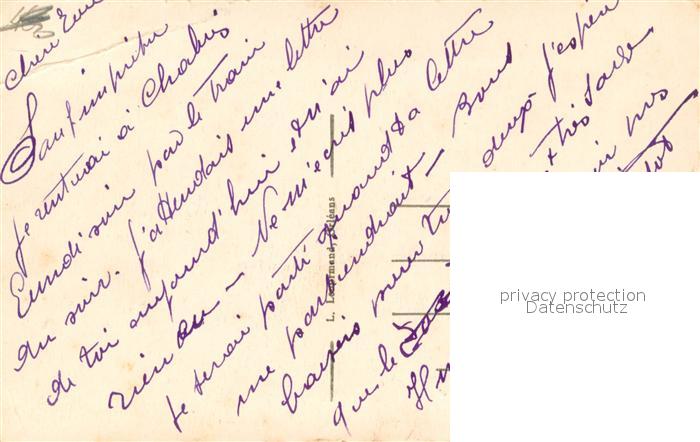 Sauf imprévu
je rentrerai à Chabris
Lundi soir par le train
du soir. J'attendais une lettre
de toi aujourd'hui et n'ai
rien eu – Ne m'écris plus
je serai parti quand ta lettre
me parviendrait – Bons
baisers pour tous deux – j'espère
que le
très sage
L. Lenormand, Orléans
privacy protection
Datenschutz